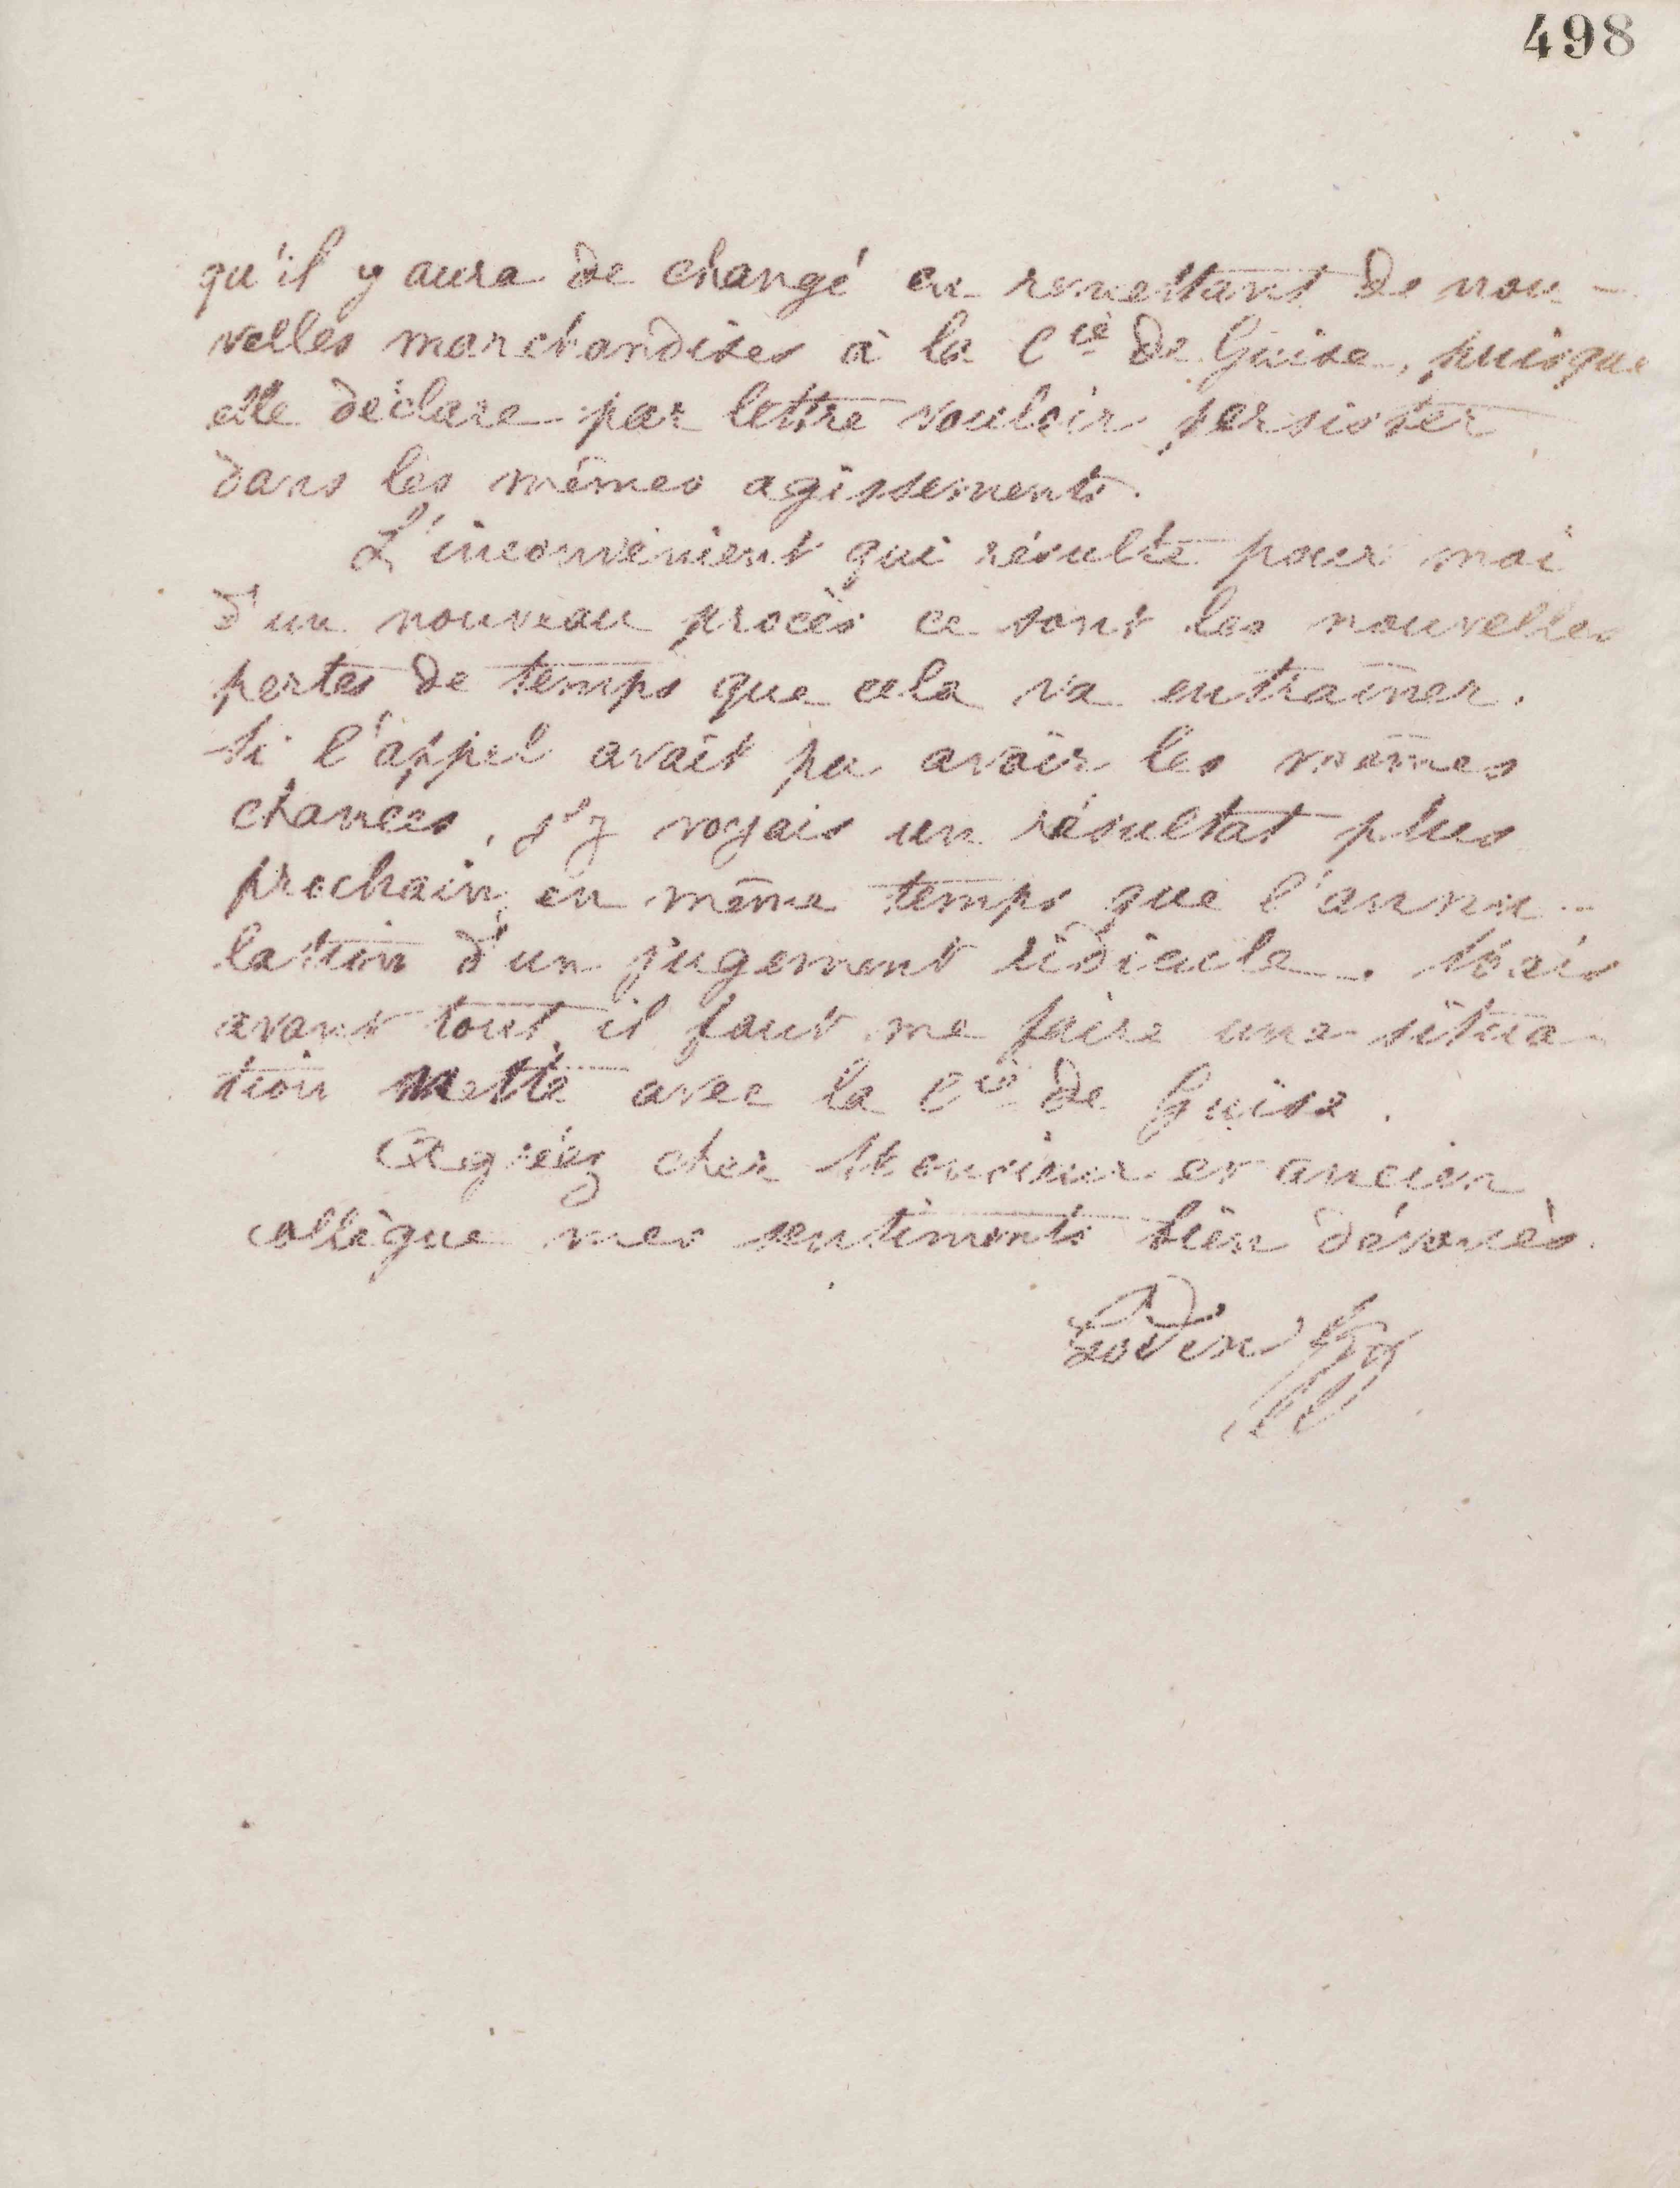 498
qu'il y aura de changé en remettant de nou-
velles marchandises à la Cie de Guise, puisque
elle déclare par lettre vouloir persister
dans les mêmes agissements.
L'inconvénient qui résulte pour moi
d'un nouveau procès ce sont les nouvelles
pertes de temps que cela va entraîner.
Si l'appel avait pu avoir les mêmes
chances, j'y voyais un résultat plus
prochain, en même temps que l'annu-
lation d'un jugement ridicule. Mais
avant tout, il faut me faire une situa-
tion nette avec la Cie de Guise.
Agréez cher Monsieur et ancien
collègue mes sentiments bien dévoués.
Godin